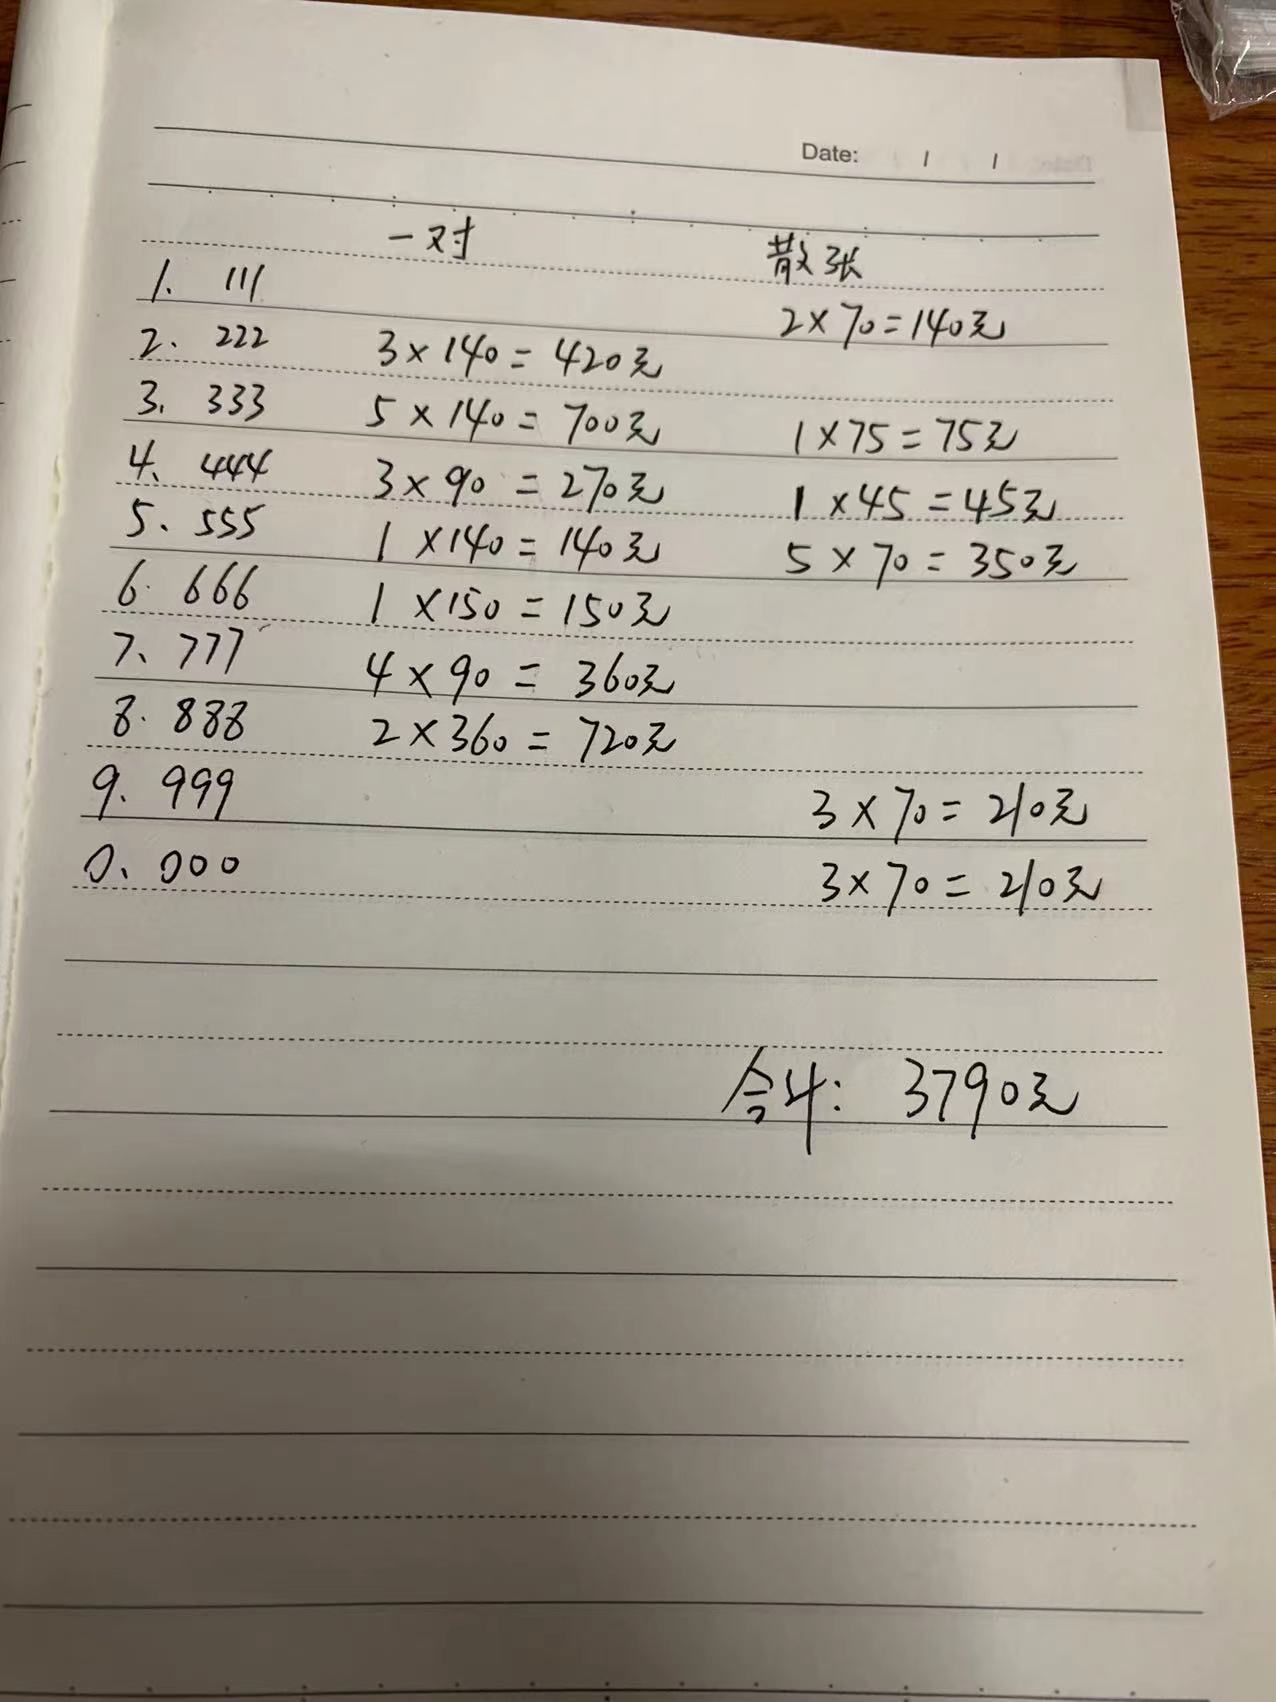 Date: / /
一对 散张
1. 111 2×70=140元
2. 222 3×140=420元
3. 333 5×140=700元 1×75=75元
4. 444 3×90=270元 1×45=45元
5. 555 1×140=140元 5×70=350元
6. 666 1×150=150元
7. 777 4×90=360元
8. 888 2×360=720元
9. 999 3×70=210元
0. 000 3×70=210元
合计: 3790元